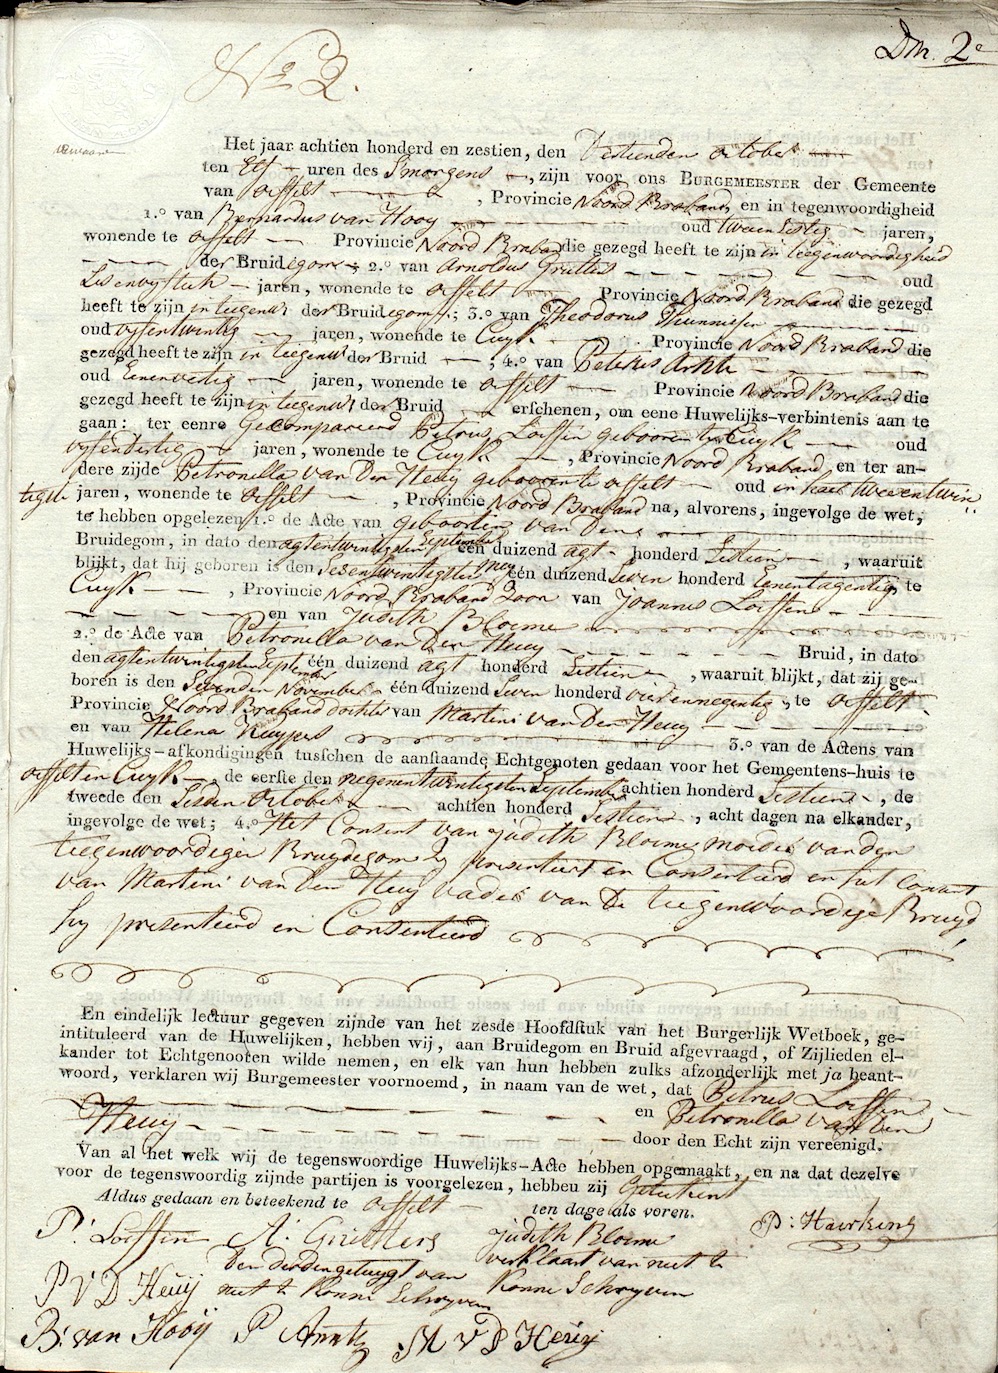 Dm. 2e
No 2.
Het jaar achtien honderd en zestien, den Vertienden october
ten Elf uren des Smorgens, zijn voor ons BURGEMEESTER der Gemeente
van oeffelt, Provincie Noord Braband, en in tegenwoordigheid
1.o van Bernardus van Hooy oud tweensestig jaren,
wonende te oeffelt Provincie Noord Braband die gezegd heeft te zijn in teegenwoordigheid
der Bruidegom; 2.o van Arnoldus Gruttes oud
Sesenvyftich jaren, wonende te oeffelt Provincie Noord Braband die gezegd
heeft te zijn in teegenw der Bruidegom; 3.o van Theodorus Thunnissen
oud vyfentwintig jaren, wonende te Cuyk Provincie Noord Braband die
gezegd heeft te zijn in teegenw der Bruid; 4.o van Petrus
oud Eenenvertig jaren, wonende te oeffelt Provincie Noord Braband die
gezegd heeft te zijn in teegenw der Bruid erschenen, om eene Huwelijks-verbintenis aan te
gaan: ter eenre Gecompareerd Petrus Loeffen gebooren te Cuyk oud
vyfendertig jaren, wonende te Cuyk, Provincie Noord Braband, en ter an-
dere zijde Petronella van Den Heuy gebooren te oeffelt oud in haar tweeentwin
tigste jaren, wonende te oeffelt, Provincie Noord Braband na, alvorens, ingevolge de wet,
te hebben opgelezen 1.o de Acte van geboorten van Dens
Bruidegom, in dato den agtentwintigsten September één duizend agt honderd Sestien, waaruit
blijkt, dat hij geboren is den Sesentwintigsten Mey één duizend Seven honderd Eenentagentig, te
Cuyk, Provincie Noord Braband Zoon van Joannes Loeffen
en van Judith Bloeme
2.o de Acte van Petronella van Den Heuy Bruid, in dato
den agtentwintigsten September één duizend agt honderd Sestien, waaruit blijkt, dat zij ge-
boren is den Sevenden November één duizend Seven honderd vierennegentig, te oeffelt
Provincie Noord Braband dochter van Martini van Den Heuy
en van Helena Kuypers 3.o van de Actens van
Huwelijks-afkondigingen tusschen de aanstaande Echtgenoten gedaan voor het Gemeentens-huis te
oeffelt en Cuyk, de eerste den negenentwintigsten September achtien honderd Sestien, de
tweede den Sesden October achtien honderd Sestien, acht dagen na elkander,
ingevolge de wet; 4.o Het Consent van Judith Bloeme moeder van den
teegenwoordigen Bruydegom Zy presenteert en Consenteerd en het Consent
van Martini van Den Heuy vader van De teegenwoordige Bruyd
hy presenteerd en Consenteerd
En eindelijk lectuur gegeven zijnde van het zesde Hoofdstuk van het Burgerlijk Wetboek, ge-
intituleerd van de Huwelijken, hebben wij, aan Bruidegom en Bruid afgevraagd, of Zijlieden el-
kander tot Echtgenooten wilde nemen, en elk van hun hebben zulks afzonderlijk met ja beant-
woord, verklaren wij Burgemeester voornoemd, in naam van de wet, dat Petrus Loeffen
en Petronella van Den
Heuy door den Echt zijn vereenigd.
Van al het welk wij de tegenswoordige Huwelijks-Acte hebben opgemaakt, en na dat dezelve
voor de tegenswoordig zijnde partijen is voorgelezen, hebben zij Geteekent
Aldus gedaan en beteekend te oeffelt ten dage als voren.
P: Loeffen A: Grutters Judith Bloeme P: Haerkens
Den derden getuygt van verklaart van niet te
P V D Heuij niet te konne Schryven Konne Schryven
B: van Hooij P Arntz M V D Heuij